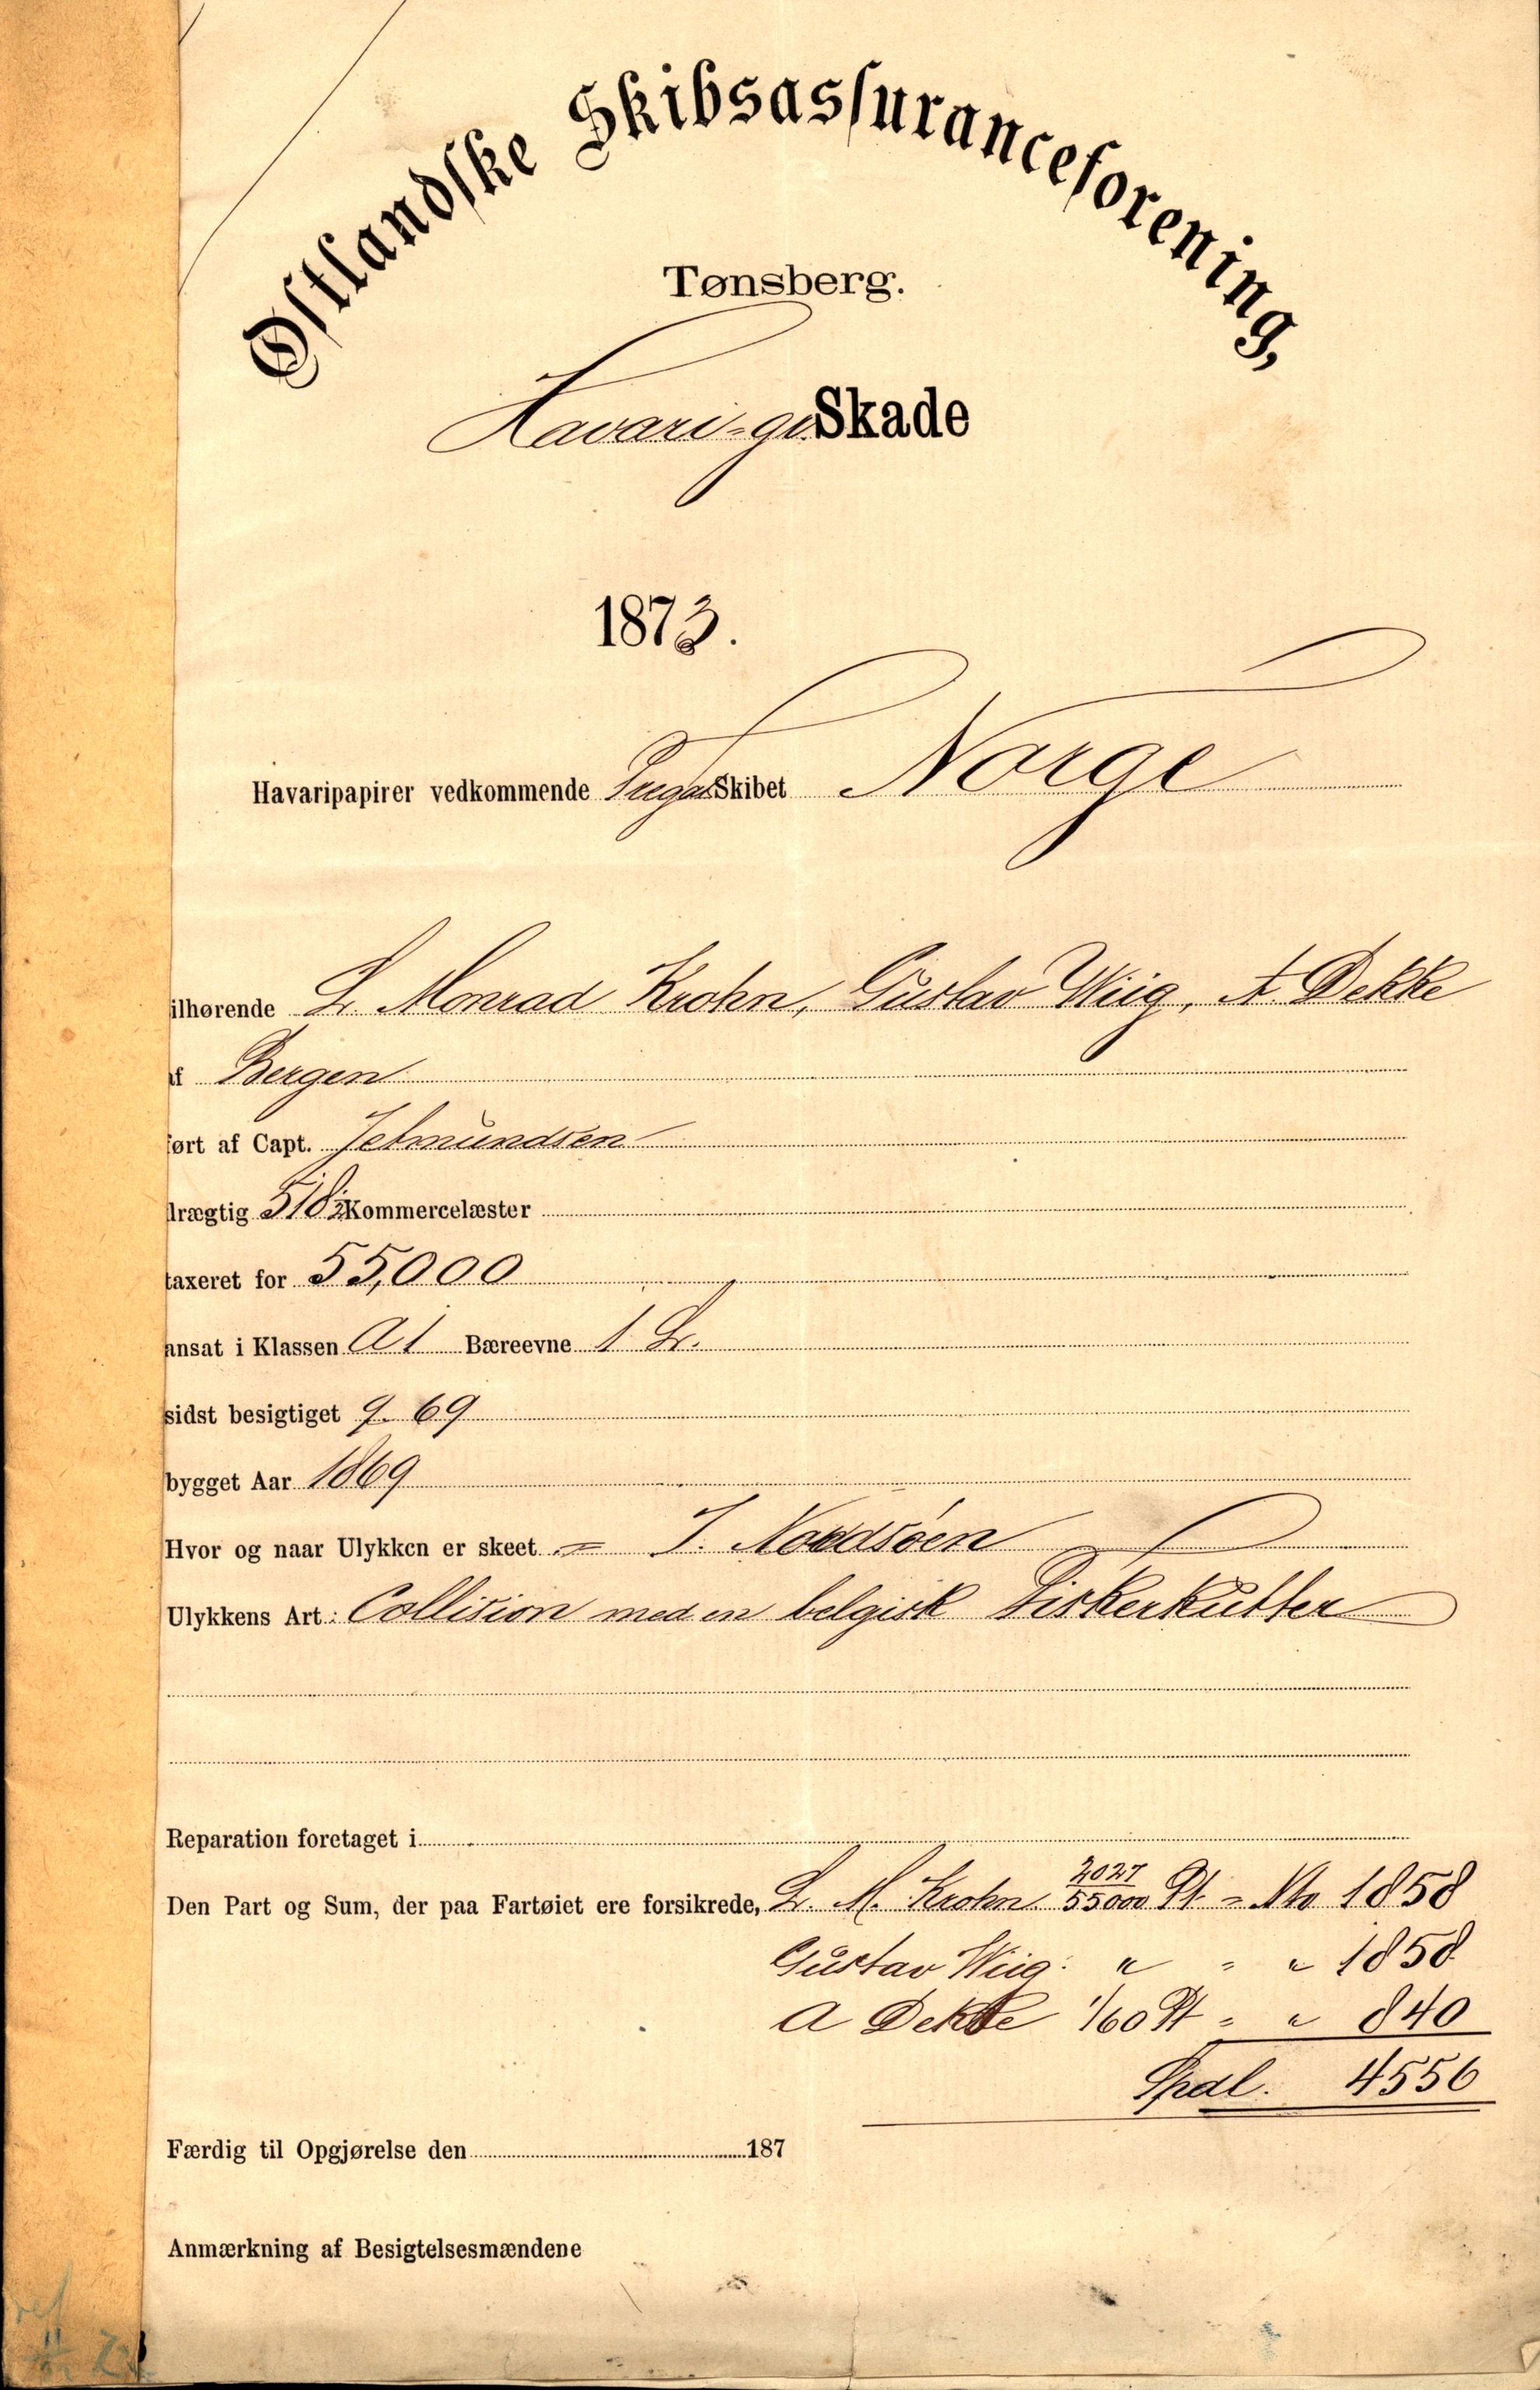 Østlandske Skibsassuranceforening,
Tønsberg.
Havari-gr. Skade
1873.
Havaripapirer vedkommende Fregat Skibet Norge
ilhørende L. Monrad Krohn, Gustav Wiig, A. Dekke
af Bergen
ført af Capt. Jetmundsen
drægtig 518½ Kommercelæster
taxeret for 55,000
ansat i Klassen A1 Bæreevne 1 Kr.
sidst besigtiget 9. 69
bygget Aar 1869
Hvor og naar Ulykken er skeet = I. Nordsöen
Ulykkens Art: Collision med en belgisk Fiskerkutter
Reparation foretaget i
Den Part og Sum, der paa Fartøiet ere forsikrede, L. M. Krohn 2027/55000 Pt = Nto 1858
Gustav Wiig: " = " 1858
A Dekke 1/60 Pt = " 840
Spdl. 4556
Færdig til Opgjørelse den 187
Anmærkning af Besigtelsesmændene